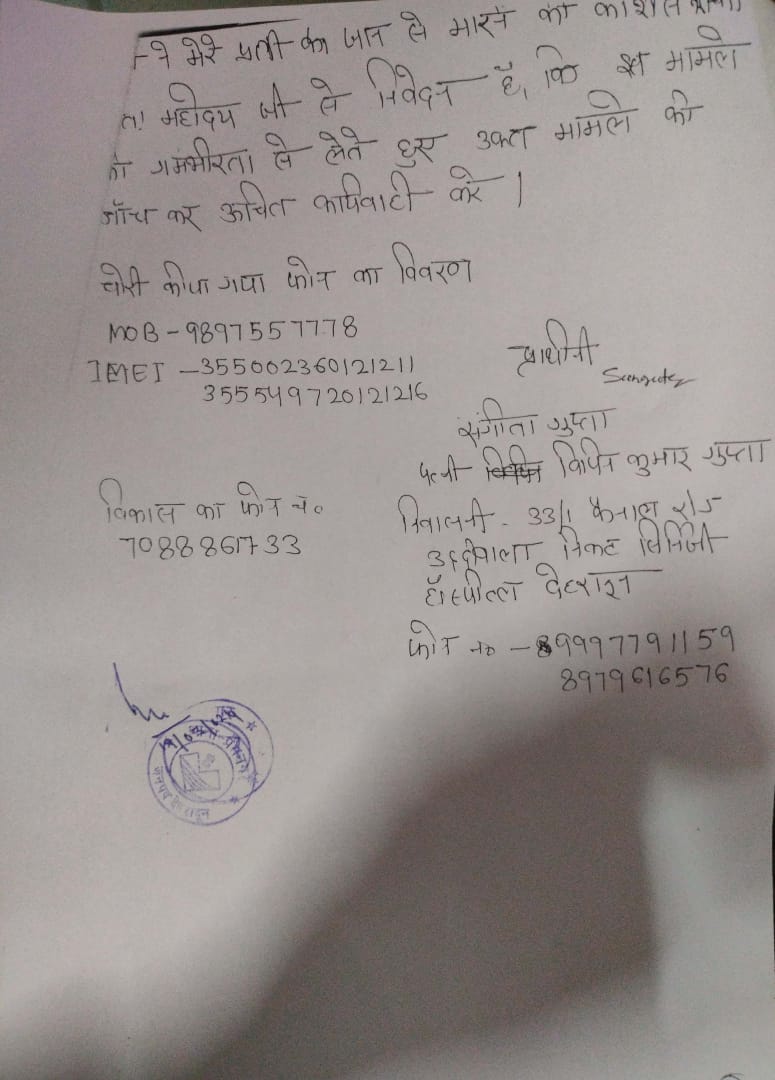 ने मेरे पती को जान से मारने की कोशिश
महोदय जी से निवेदन है, कि इस मामले
को गम्भीरता से लेते हुए उक्त मामले की
जाँच कर उचित कार्यवाही करे |
चोरी कीया गया फोन का विवरण
MOB - 9897557778
IMEI - 355002360121211
355549720121216
प्रार्थीनी
संगीता गुप्ता
पत्नी विपिन कुमार गुप्ता
निवासनी - 33/1 कैनाल रोड
निकट
हॉस्पीटल देहरादून
फोन no - 9997791159
8979616576
विकास का फोन न०
7088861733